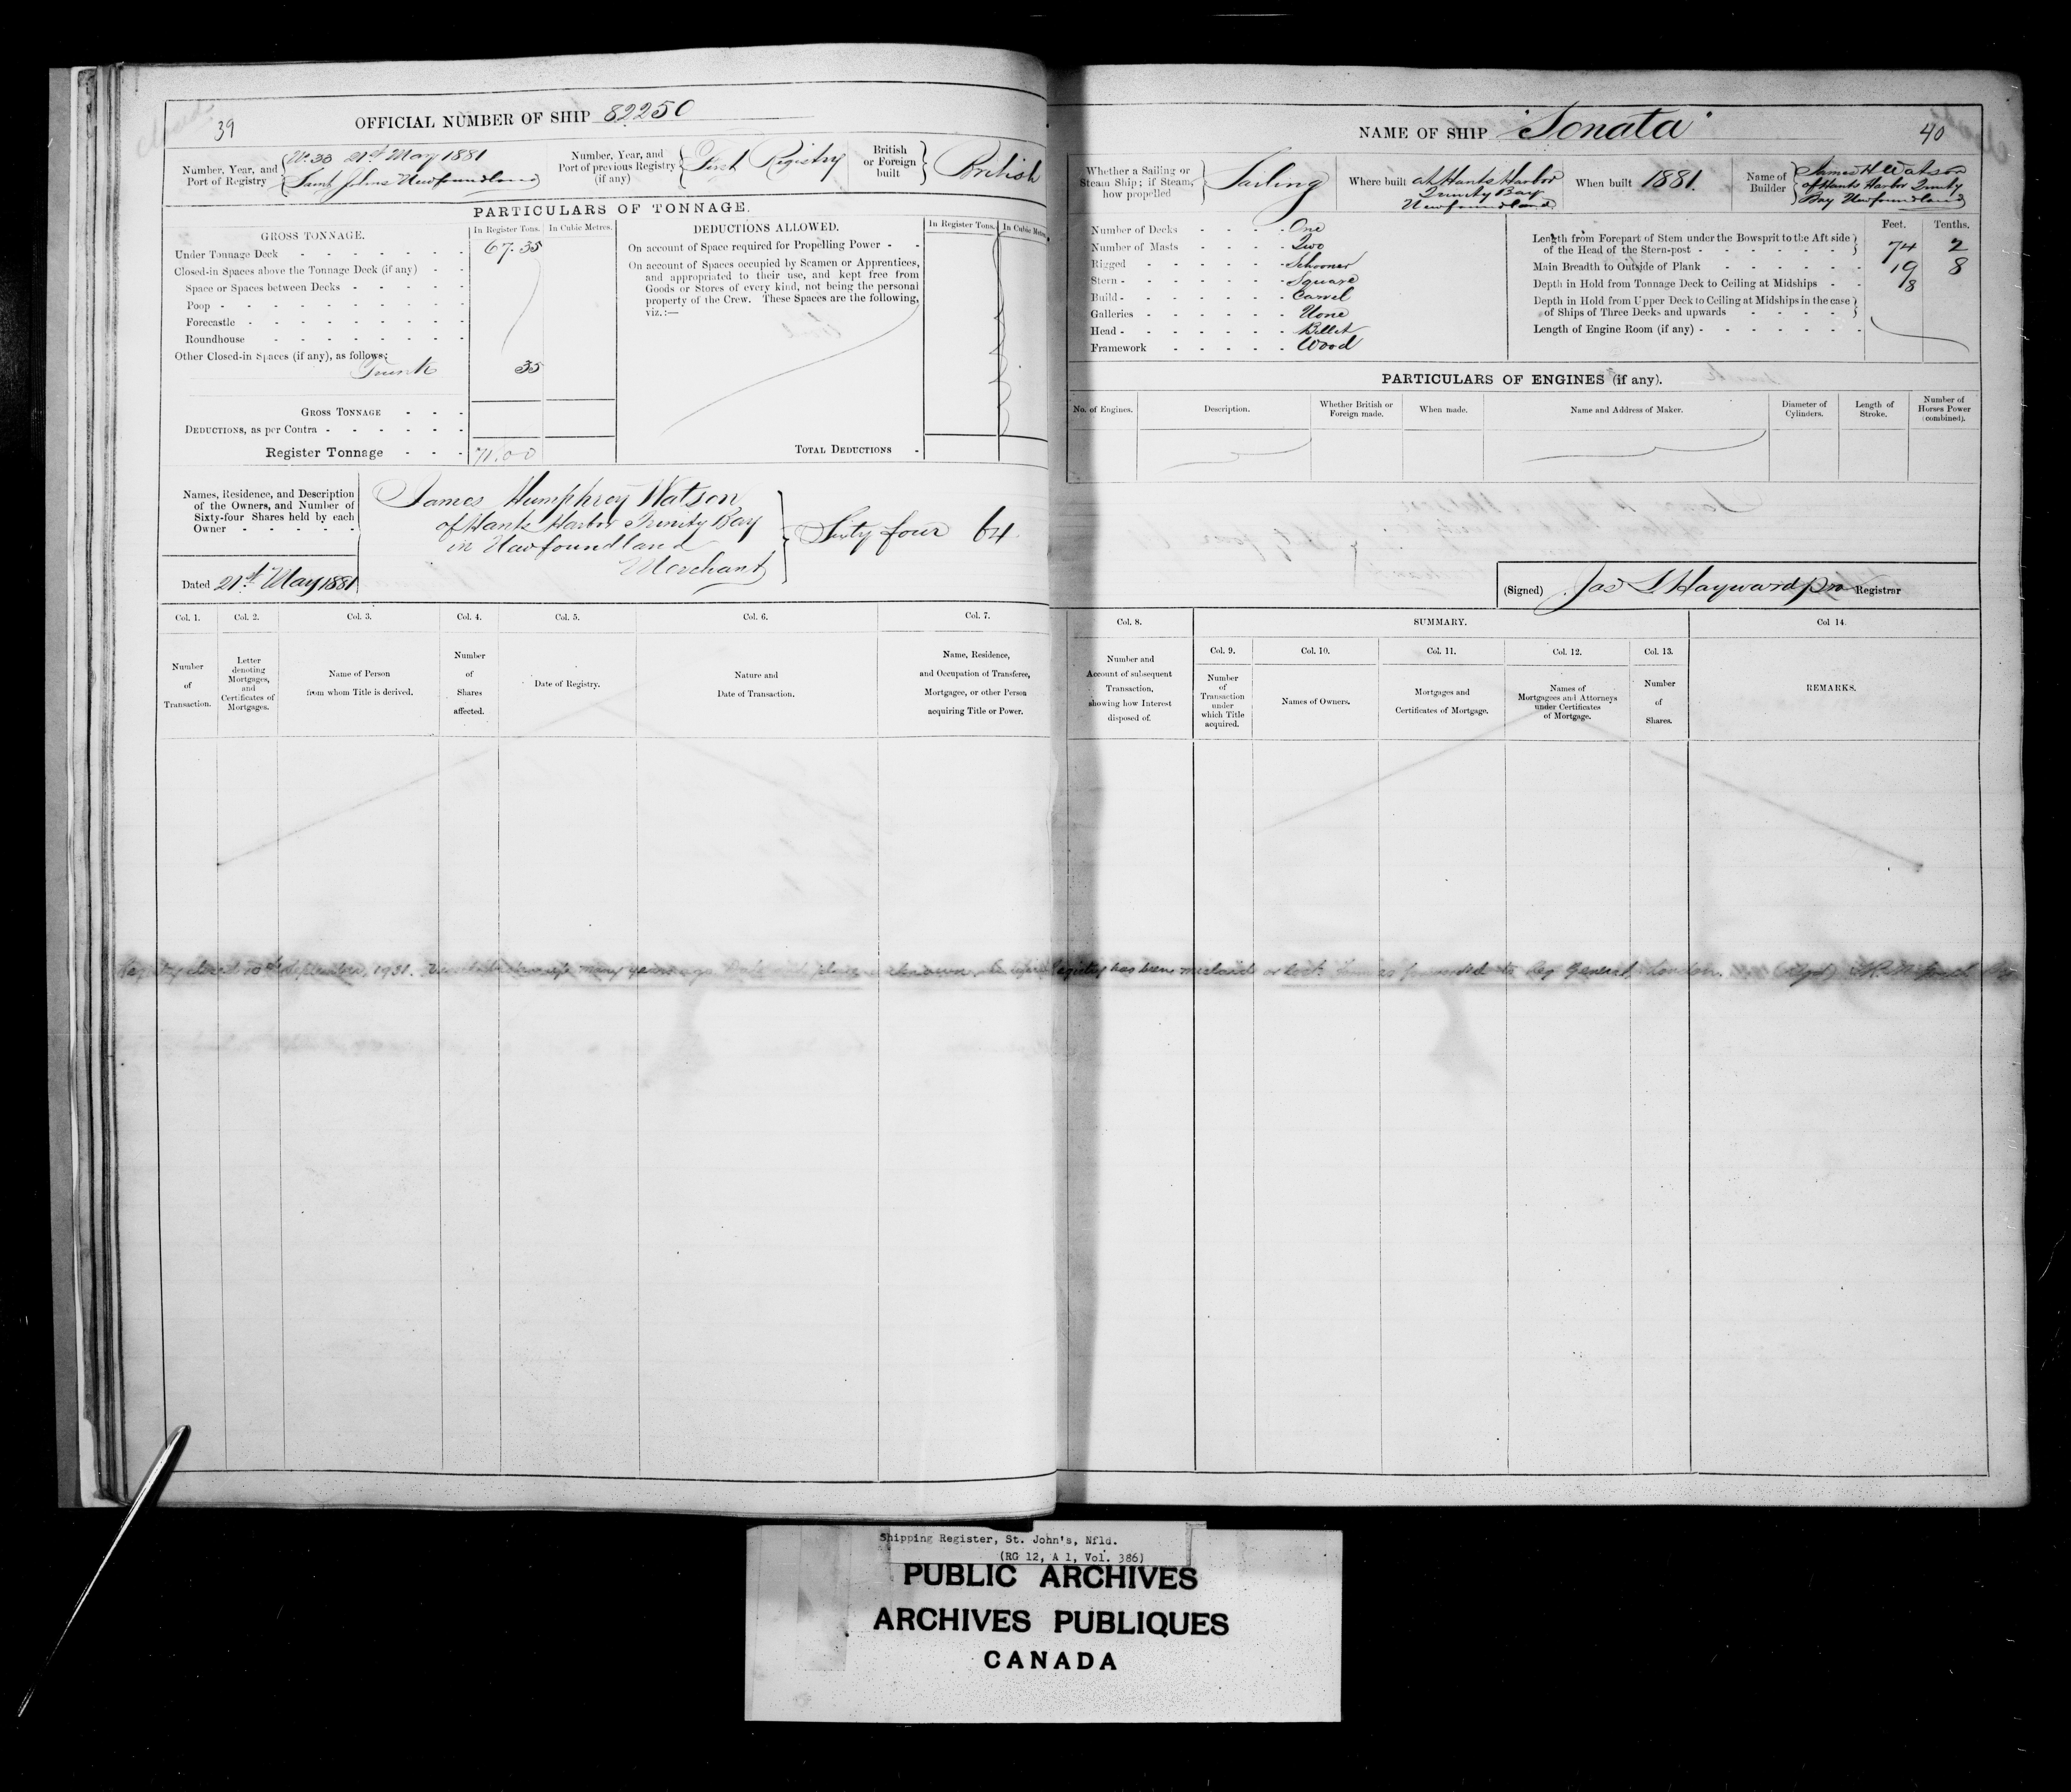 39
OFFICIAL NUMBER OF SHIP 82250
Number, Year, and Port of Registry
No. 30 21st May 1881
Saint Johns Newfoundland
Number, Year, and Port of previous Registry (if any)
First Registry
British or Foreign built
British
PARTICULARS OF TONNAGE.
GROSS TONNAGE.
In Register Tons. In Cubic Metres.
Under Tonnage Deck 67.35
Closed-in Spaces above the Tonnage Deck (if any)
Space or Spaces between Decks
Poop
Forecastle
Roundhouse
Other Closed-in Spaces (if any), as follows:
Trunk 35
GROSS TONNAGE
DEDUCTIONS, as per Contra
Register Tonnage 71.00
DEDUCTIONS ALLOWED.
In Register Tons. In Cubic Metres
On account of Space required for Propelling Power
On account of Spaces occupied by Seamen or Apprentices,
and appropriated to their use, and kept free from
Goods or Stores of every kind, not being the personal
property of the Crew. These Spaces are the following,
viz.:—
TOTAL DEDUCTIONS
Names, Residence, and Description
of the Owners, and Number of
Sixty-four Shares held by each
Owner
James Humphrey Watson
of Hants Harbor Trinity Bay
in Newfoundland
Merchant
Sixty four 64
Dated 21st May 1881
Col. 1. Col. 2. Col. 3. Col. 4. Col. 5. Col. 6. Col. 7.
Number of Transaction.
Letter denoting Mortgages, and Certificates of Mortgages.
Name of Person from whom Title is derived.
Number of Shares affected.
Date of Registry.
Nature and Date of Transaction.
Name, Residence, and Occupation of Transferee, Mortgagee, or other Person acquiring Title or Power.
NAME OF SHIP "Sonata"
40
Whether a Sailing or Steam Ship; if Steam, how propelled
Sailing
Where built
at Hants Harbor
Trinity Bay
Newfoundland
When built 1881.
Name of Builder
James H Watson
of Hants Harbor Trinity
Bay Newfoundland
Number of Decks One
Number of Masts Two
Rigged Schooner
Stern Square
Build Carvel
Galleries None
Head Billet
Framework Wood
Feet. Tenths.
Length from Forepart of Stem under the Bowsprit to the Aft side
of the Head of the Stern-post 74 2
Main Breadth to Outside of Plank 19 8
Depth in Hold from Tonnage Deck to Ceiling at Midships 8
Depth in Hold from Upper Deck to Ceiling at Midships in the case
of Ships of Three Decks and upwards
Length of Engine Room (if any)
PARTICULARS OF ENGINES (if any).
No. of Engines.
Description.
Whether British or Foreign made.
When made.
Name and Address of Maker.
Diameter of Cylinders.
Length of Stroke.
Number of Horses Power (combined).
(Signed) Jas S Hayward pro Registrar
Col. 8.
Number and Account of subsequent Transaction, showing how Interest disposed of.
SUMMARY.
Col. 9. Col. 10. Col. 11. Col. 12. Col. 13.
Number of Transaction under which Title acquired.
Names of Owners.
Mortgages and Certificates of Mortgage.
Names of Mortgagees and Attorneys under Certificates of Mortgage.
Number of Shares.
Col 14.
REMARKS.
Registry closed 10th September, 1931. many years ago. Date and place unknown. registry has been mislaid or lost. forwarded to Reg General, London.
Shipping Register, St. John's, Nfld.
(RG 12, A 1, Vol. 386)
PUBLIC ARCHIVES
ARCHIVES PUBLIQUES
CANADA